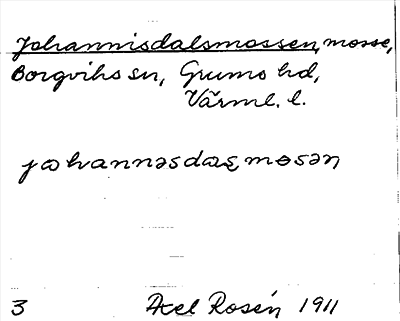 Johannisdalsmossen, mosse,
Borgviks sn, Grums hd,
Värml. l.
3 Axel Rosén 1911